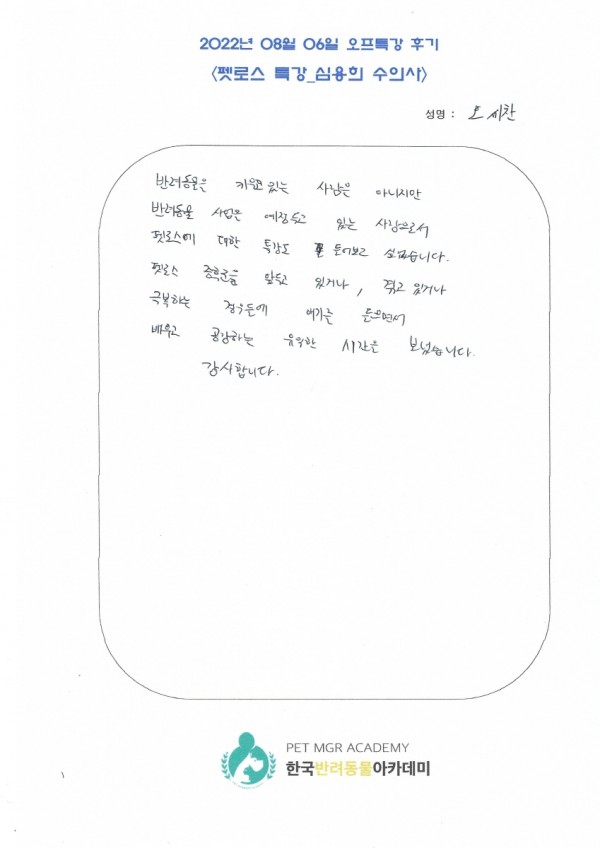 2022년 08월 06일 오프특강 후기
<펫로스 특강_심용희 수의사>
성명 : 오세찬
반려동물은 키우고 있는 사람은 아니지만
반려동물 사업을 예정두고 있는 사람으로서
펫로스에 대한 특강도 들어보고 싶었습니다.
펫로스 증후군을 앞두고 있거나, 겪고 있거나
극복하는 경우들에 얘기를 들으면서
배우고 공감하는 유익한 시간을 보냈습니다.
감사합니다.
PET MGR ACADEMY
한국반려동물아카데미